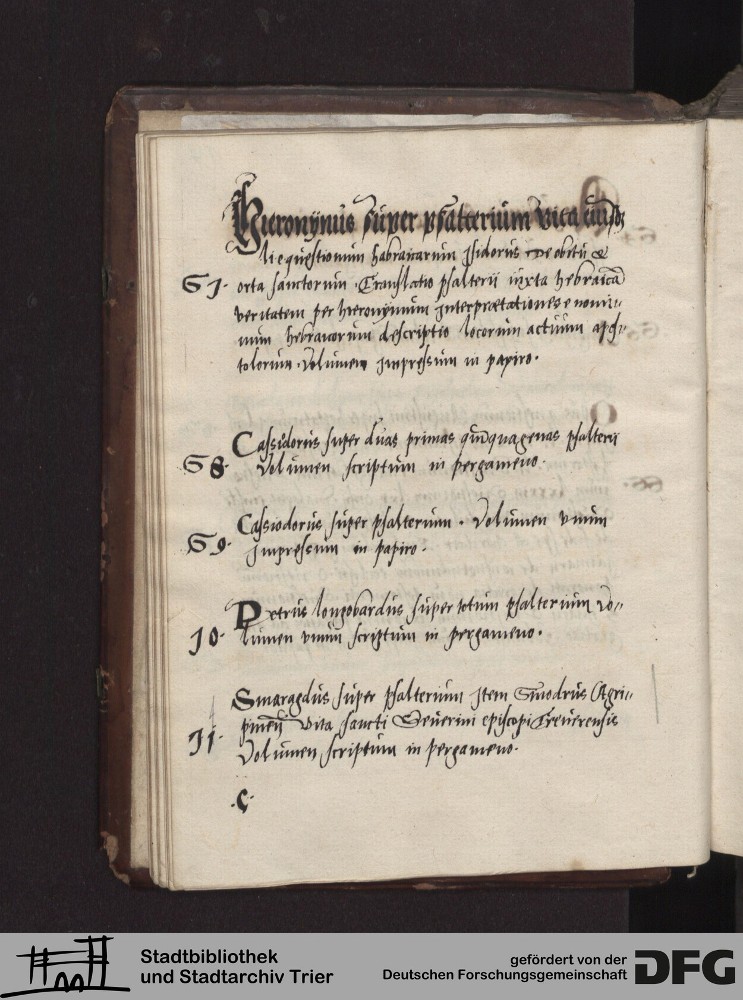 Hieronÿmus super psalterium vita eiusdem
li equestionum habraicarum Jsidorus De obitu &
67· orta sanctorum · Translatio psalterii iuxta hebraicā
veritatem per hieronÿmum Jnterprætationes e nomi-
num hebraicorum descriptio locorum actuum apos-
tolorum · Volumen Jmpressum in papiro ·
Cassiodorus super duas primas quinquagenas psalterii
68· Volumen scriptum in pergameno ·
Cassiodorus super psalterium · Volumen vnum
69· Jmpressum in papiro ·
Petrus longobardus super totum psalterium vo-
70· lumen vnum scriptum in pergameno ·
Smaragdus super psalterium Jtem Agri-
Vita sancti Seuerini episcopi Treuerensis
71· Volumen scriptum in pergameno ·
·C·
Stadtbibliothek
und Stadtarchiv Trier
gefördert von der
Deutschen Forschungsgemeinschaft
DFG